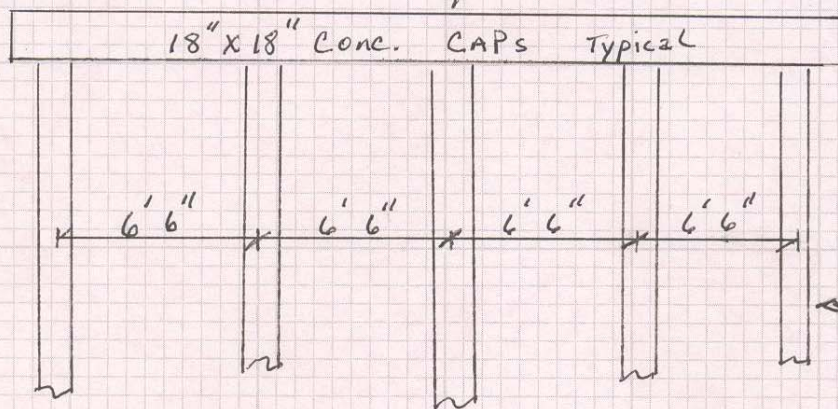 18" X 18" Conc. CAPs Typical
6' 6" 6' 6" 6' 6" 6' 6"